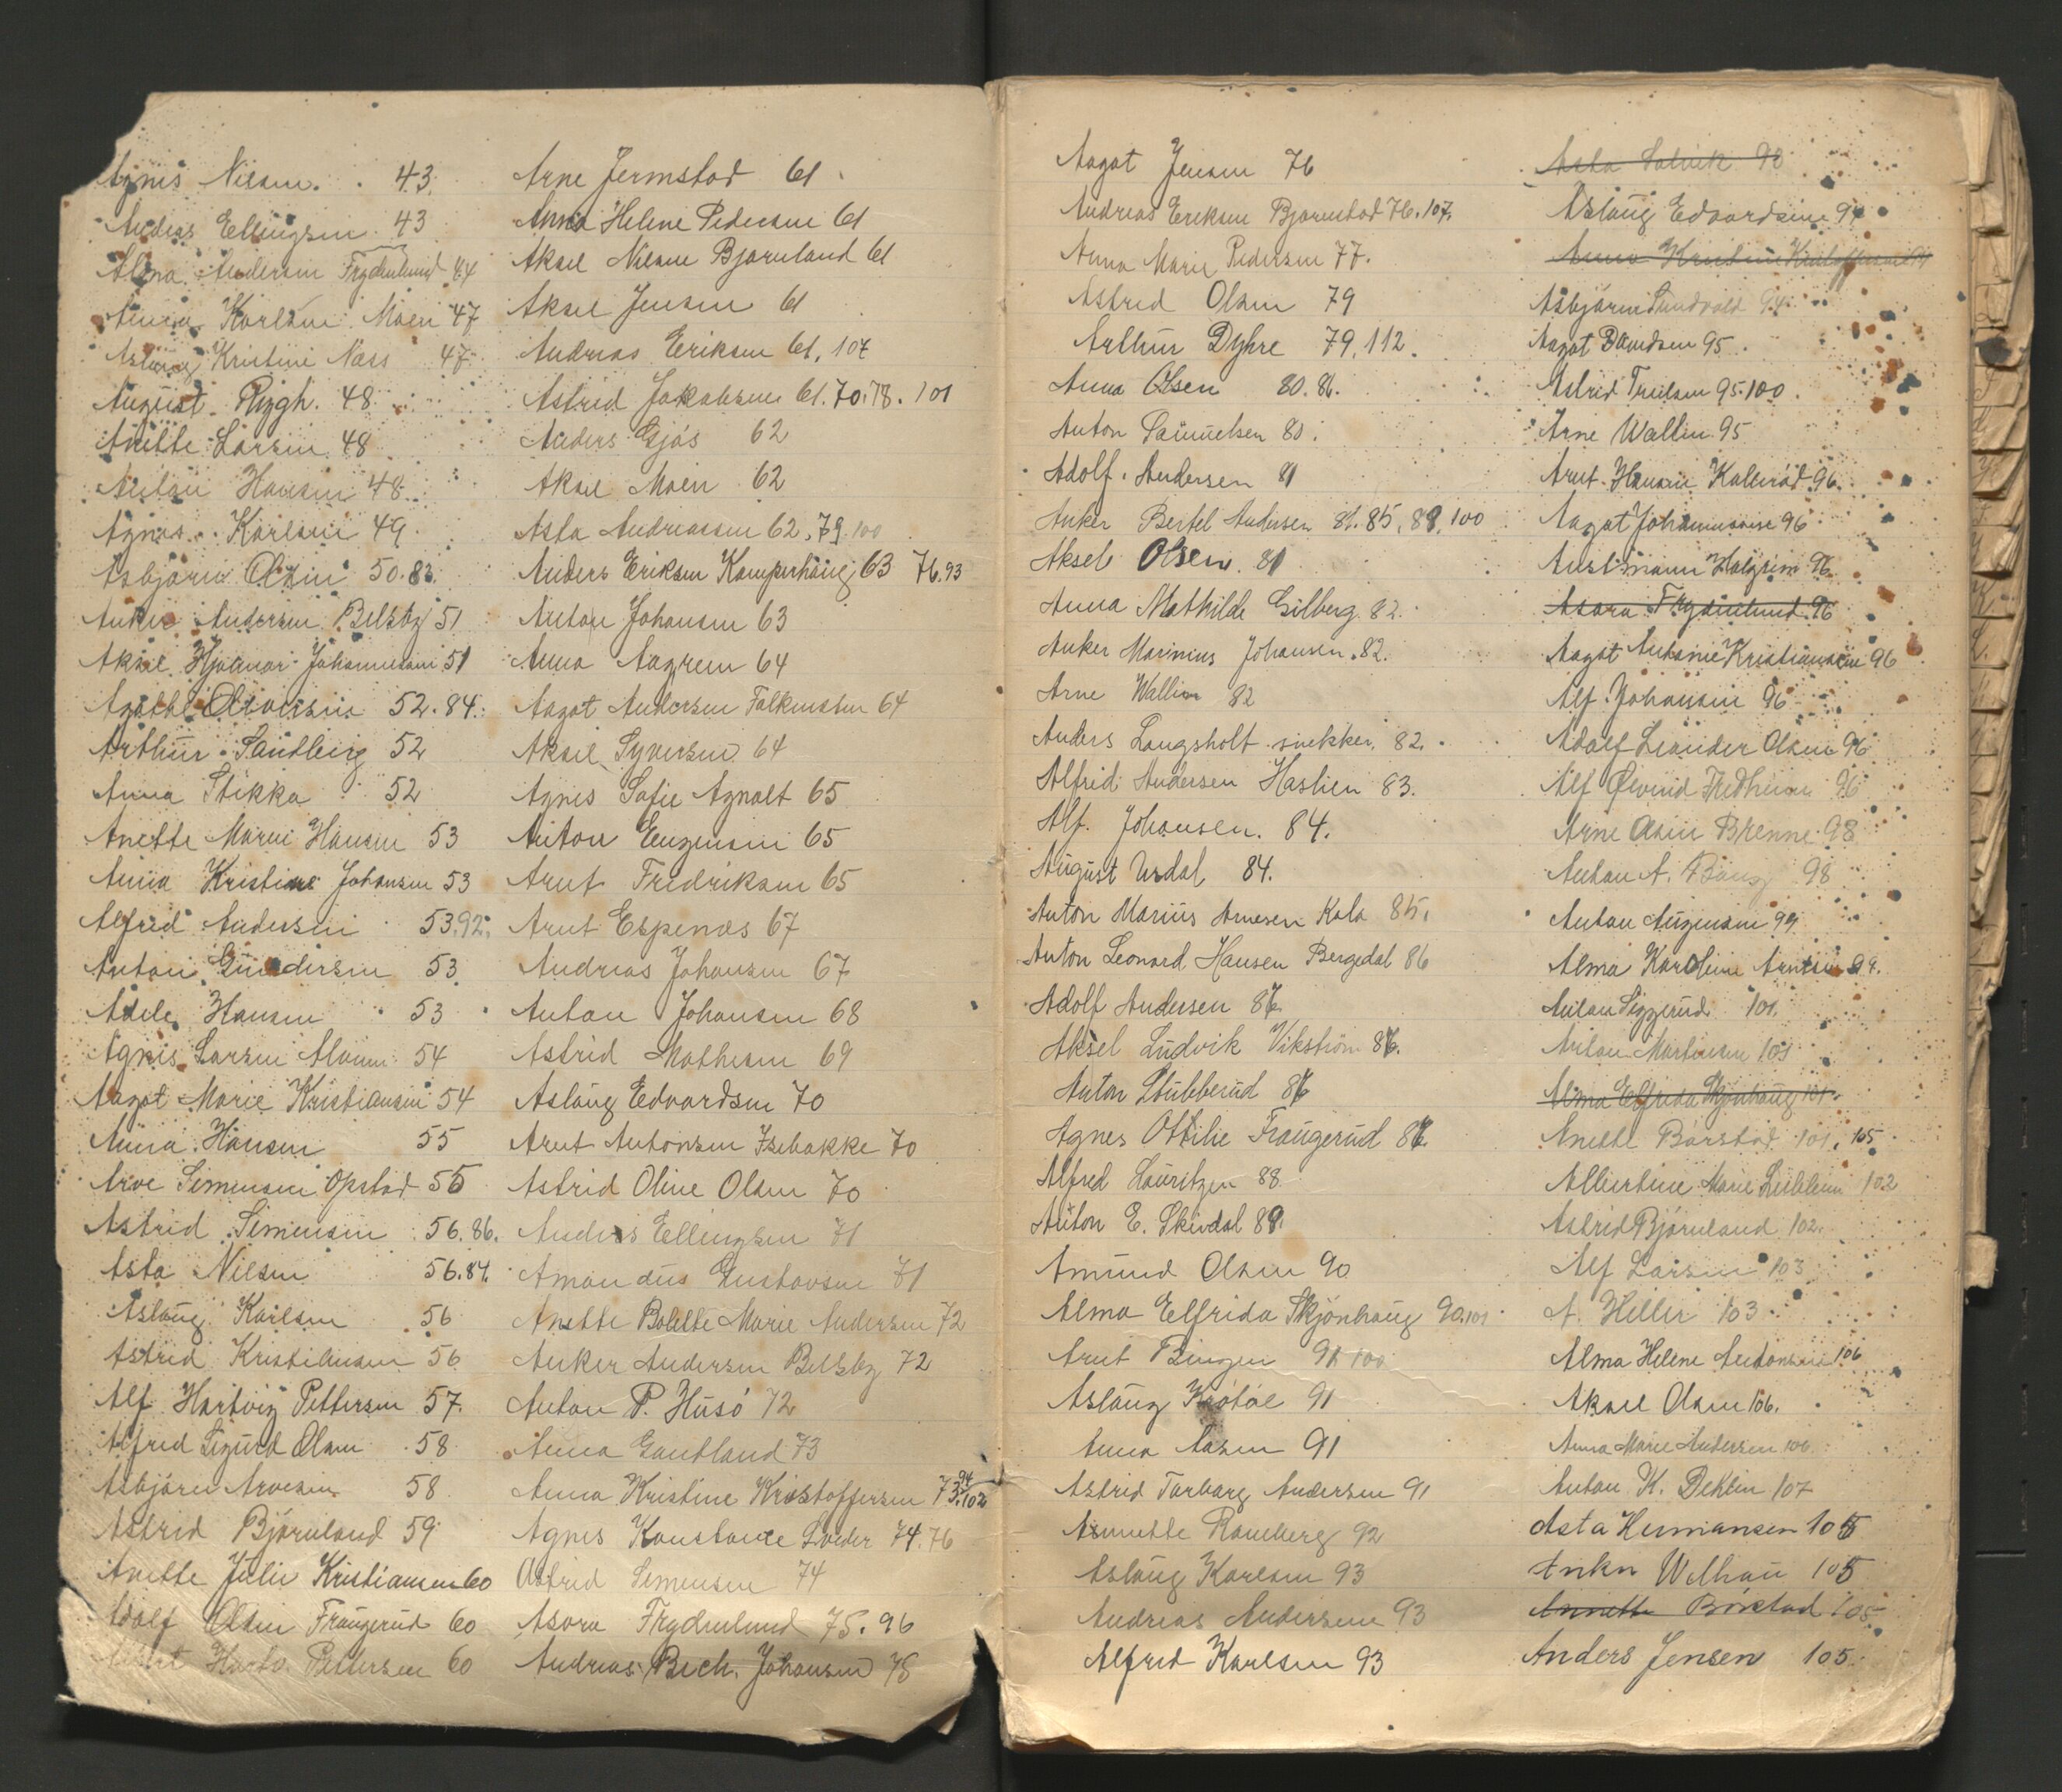 Agnes Nilsen. 43
Anders Ellingsen 43
Alma Andersen Frydenlund 44
Anna Karlsen Moen 47
Aslaug Kristine Næss 47
August Rygh. 48
Anette Larsen 48
Anton Hansen 48
Agnes Karlsen 49
Asbjørn Olsen 50.82.
Anker Andersen Belsby 51
Aksel Hjalmar Johannesen 51
Agathe 52.84.
Arthur Sandberg 52
Anna Stikka 52
Anette Marie Hansen 53
Anna Kristine Johansen 53
Alfred Andersen 53.92.
Anton Gundersen 53
Adele Hansen 53
Agnes Larsen 54
Aagot Marie Kristiansen 54
Anna Hansen 55
Arve Simensen Opstad 55
Astrid Simensen 56.86.
Asta Nilsen 56.84.
Aslaug Karlsen 56
Astrid Kristiansen 56
Alf Hartvig Pettersen 57.
Alfred Sigurd Olsen 58
Asbjørn Arvesen 58
Astrid Bjørnland 59
Anette Julie Kristiansen 60
Adolf Olsen Fraugerud 60
Pettersen 60
Arne Jermstad 61
Anna Helene Pedersen 61
Aksel Nilsen Bjørnland 61
Aksel Jensen 61
Andreas Eriksen 61, 107
Astrid Jakobsen 61.70.78.101
Anders Gjøs 62
Aksel Moen 62
Asta Andreassen 62, 79 100
Anders Eriksen Kamperhaug 63 76.93
Anton Johansen 63
Anna Aagrem 64
Aagot Andersen Falkensten 64
Aksel Syversen 64
Agnes Sofie Agnalt 65
Anton Eugensen 65
Arnt Fredriksen 65
Arnt Espenæs 67
Andreas Johansen 67
Anton Johansen 68
Astrid Mathesen 69
Aslaug Edvardsen 70
Arnt Antonsen Isebakke 70
Astrid Oline Olsen 70
Anders Ellingsen 71
Amandus Gustavsen 71
Anette Bolette Marie Andersen 72
Anker Andersen Belsby 72
Anton P. Husø 72
Anna Gautland 73
Anna Kristine Kristoffersen 73.94.102
Agnes Konstance Lveder 74.76
Astrid Simensen 74
Asora Frydenlund 75.96
Andreas Bech. Johansen 78
Aagot Jensen 76
Andreas Eriksen Bjørnstad 76.107.
Anna Marie Pedersen 77.
Astrid Olsen 79
Arthur Dyhre 79.112.
Anna Olsen 80.86.
Anton Samuelsen 80.
Adolf Andersen 81
Anker Bertel Andersen 81.85,89.100
Aksel Olsen. 81
Anna Mathilde Gilberg 82.
Anker Marinius Johansen. 82.
Arne Wallin 82
Anders Langsholt snekker. 82.
Alfred Andersen Haslien 83.
Alf. Johansen. 84.
August Urdal 84.
Anton Marius Arnesen Kala 85.
Anton Leonard Hansen Bergedal 86
Adolf Andersen 86
Aksel Ludvik Vikstrøm 86.
Anton Stubberud 86
Agnes Ottilie Fraugerud 86
Alfred Lauritzen 88
Anton E. Skivdal 89.
Amund Olsen 90
Alma Elfrida Skjønhaug 90.101
Arnt Bingen 91 100
Aslaug Krøtøe 91
Anna Aasen 91
Astrid Torborg Andersen 91
Annette Ramberg 92
Aslaug Karlsen 93
Andreas Andersen 93
Alfred Karlsen 93
Asta Solvik 93
Aslaug Edvardsen 94
Anna Kristine Kristoffersen 94
Asbjørn Sundvold 94
Aagot Davidsen 95
Astrid Treilsen 95.100.
Arne Wallin 95
Arnt Hansen Kallerød 96.
Aagot Johannesen 96
Austmann Halgrim 96
Asora Frydenlund 96
Aagot Antonie Kristiansen 96
Alf Johansen 96
Adolf Leander Olsen 96
Alf Øivind Fredheim 96
Arne Olsen Brenne 98
Anton A. Bang 98
Anton Eugensen 99.
Alma Karoline Arntsen 99.
Anton Siggerud 101.
Anton Martinsen 101
Alma Elfrida Skjønhaug 101
Anette Børstad 101. 105
Albertine Marie Lieblein 102
Astrid Bjørnland 102.
Alf Larsen 103
A. Hiller 103
Alma Helene Antonsen 106
Aksel Olsen 106.
Anna Marie Andersen 106
Anton K. Deklin 107
Asta Hermansen 105
Anker Welhau 105
Annette Børstad 105
Anders Jensen 105.